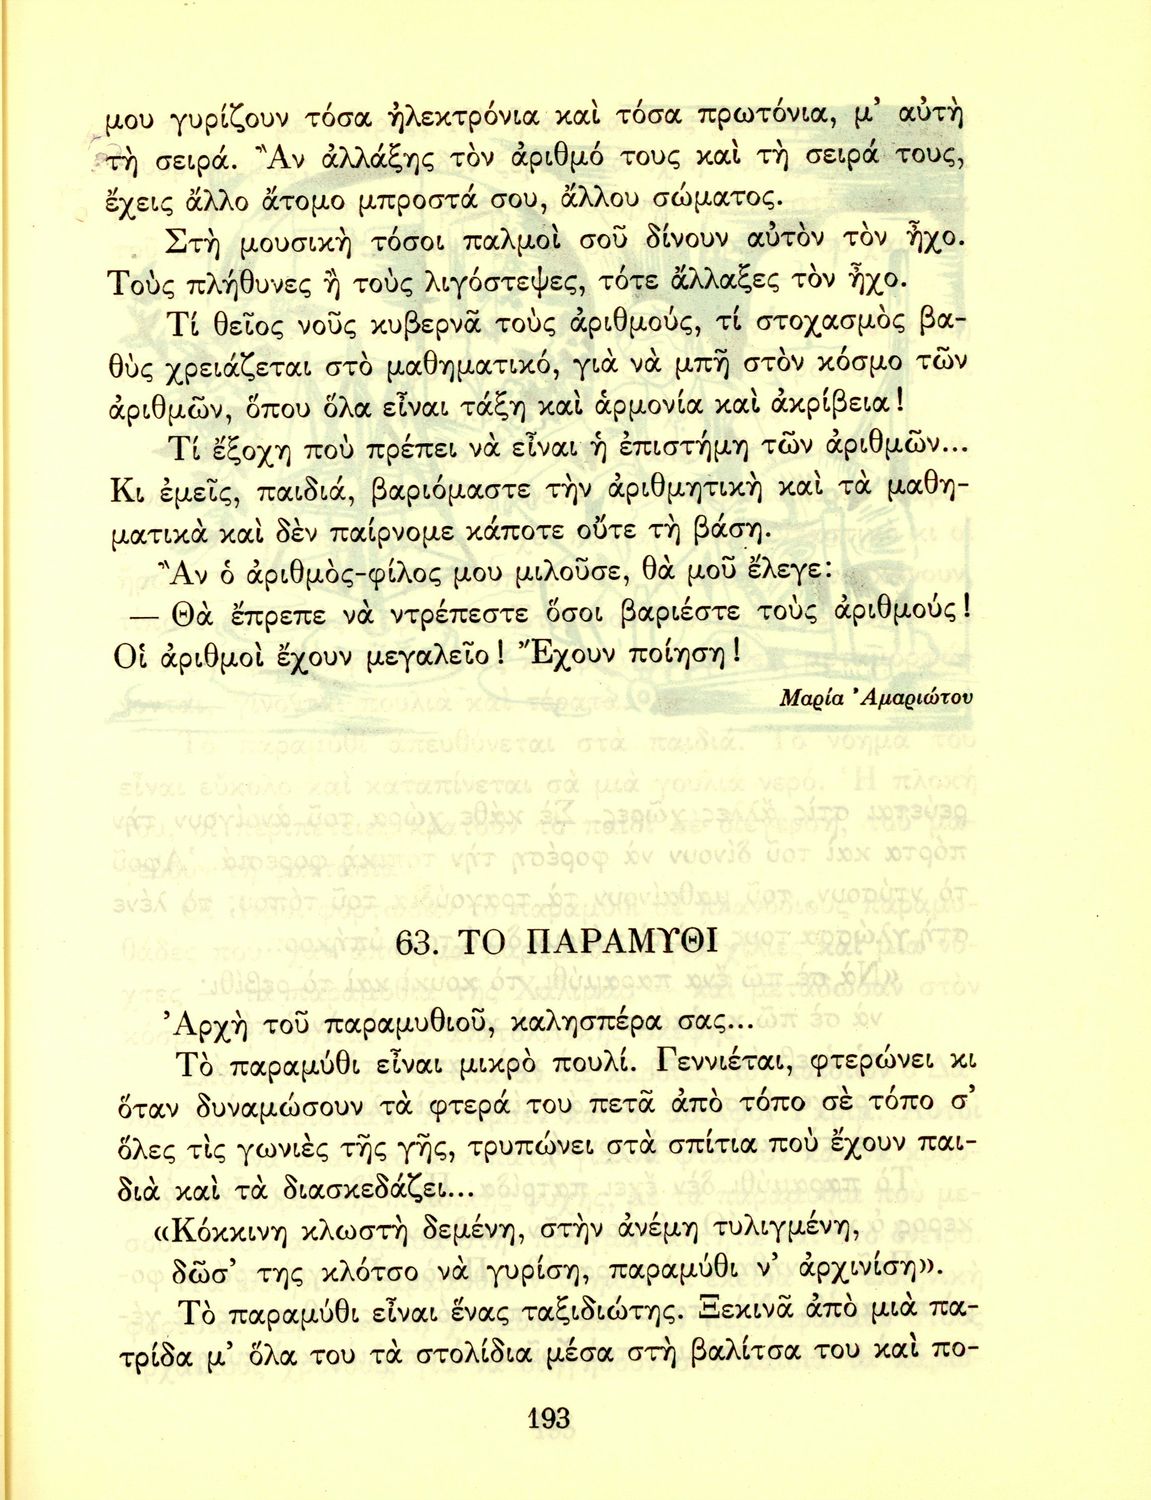 μου γυρίζουν τόσα ἠλεκτρόνια καὶ τόσα πρωτόνια, μ’ αὐτὴ
τὴ σειρά. Ἂν ἀλλάξης τὸν ἀριθμό τους καὶ τὴ σειρά τους,
ἔχεις ἄλλο ἄτομο μπροστά σου, ἄλλου σώματος.
Στὴ μουσικὴ τόσοι παλμοὶ σοῦ δίνουν αὐτὸν τὸν ἦχο.
Τοὺς πλήθυνες ἢ τοὺς λιγόστεψες, τότε ἄλλαξες τὸν ἦχο.
Τί θεῖος νοῦς κυβερνᾶ τοὺς ἀριθμούς, τί στοχασμὸς βα-
θὺς χρειάζεται στὸ μαθηματικό, γιὰ νὰ μπῆ στὸν κόσμο τῶν
ἀριθμῶν, ὅπου ὅλα εἶναι τάξη καὶ ἁρμονία καὶ ἀκρίβεια!
Τί ἔξοχη ποὺ πρέπει νὰ εἶναι ἡ ἐπιστήμη τῶν ἀριθμῶν...
Κι ἐμεῖς, παιδιά, βαριόμαστε τὴν ἀριθμητικὴ καὶ τὰ μαθη-
ματικὰ καὶ δὲν παίρνομε κάποτε οὔτε τὴ βάση.
Ἂν ὁ ἀριθμὸς-φίλος μου μιλοῦσε, θὰ μοῦ ἔλεγε:
— Θὰ ἔπρεπε νὰ ντρέπεστε ὅσοι βαριέστε τοὺς ἀριθμούς!
Οἱ ἀριθμοὶ ἔχουν μεγαλεῖο! Ἔχουν ποίηση!
Μαρία Ἀμαριώτου
63. ΤΟ ΠΑΡΑΜΥΘΙ
Ἀρχὴ τοῦ παραμυθιοῦ, καλησπέρα σας...
Τὸ παραμύθι εἶναι μικρὸ πουλί. Γεννιέται, φτερώνει κι
ὅταν δυναμώσουν τὰ φτερά του πετᾶ ἀπὸ τόπο σὲ τόπο σ’
ὅλες τὶς γωνιὲς τῆς γῆς, τρυπώνει στὰ σπίτια ποὺ ἔχουν παι-
διὰ καὶ τὰ διασκεδάζει...
«Κόκκινη κλωστὴ δεμένη, στὴν ἀνέμη τυλιγμένη,
δῶσ’ της κλότσο νὰ γυρίση, παραμύθι ν’ ἀρχινίση».
Τὸ παραμύθι εἶναι ἕνας ταξιδιώτης. Ξεκινᾶ ἀπὸ μιὰ πα-
τρίδα μ’ ὅλα του τὰ στολίδια μέσα στὴ βαλίτσα του καὶ πο-
193